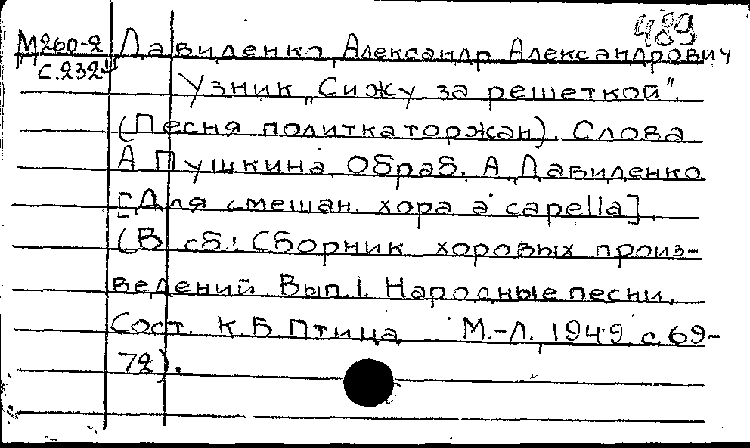 489
М260-2 Давиденко, Александр Александрович
с.232 Узник „Сижу за решеткой"
(Песня политкаторжан). Слова
А. Пушкина. Обраб. А. Давиденко
[Для смешан. хора a capella].
(В сб.: Сборник хоровых произ-
ведений. Вып. I. Народные песни.
Сост. К.Б. Птица. М.-Л., 1949, с. 69-
72).